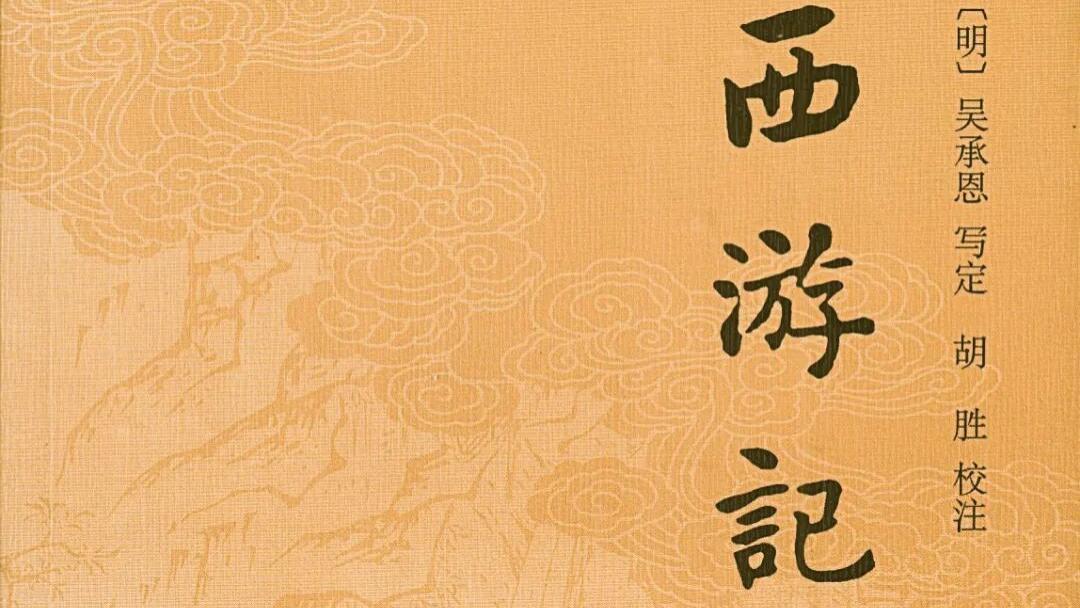 西游記
〔明〕吴承恩 写定 胡 胜 校注